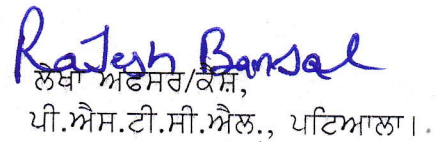 Rajesh Bansal
ਲੇਖਾ ਅਫਸਰ/ਕੈਸ਼,
ਪੀ.ਐਸ.ਟੀ.ਸੀ.ਐਲ., ਪਟਿਆਲਾ।